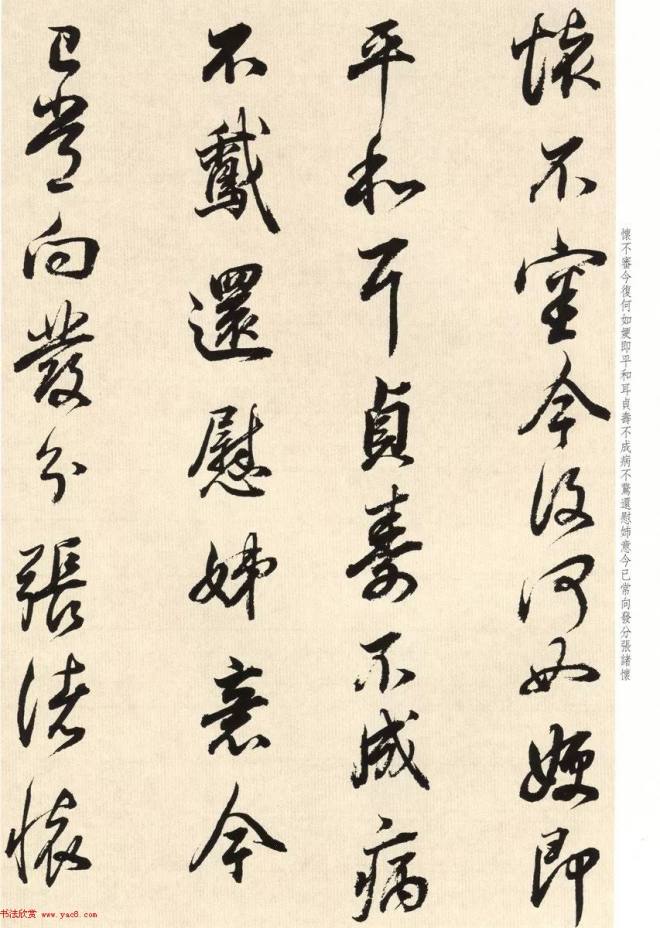 懷不審今復何如㛹即
平和耳貞壽不成病
不驚還慰姊意今
已常向發分張諸懷
懷不審今復何如㛹即平和耳貞壽不成病不驚還慰姉意今已常向發分張諸懷
书法欣赏 www.yac8.com